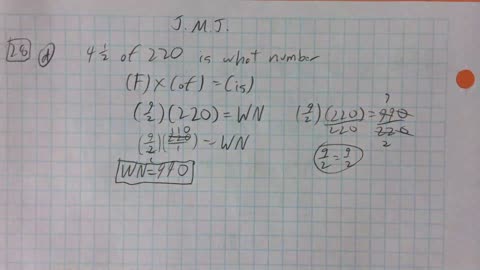 J.M.J.
28 d 4 1/2 of 220 is what number
(F) x (of) = (is)
(9/2)(220) = WN
(9/2)(220/1) = WN
110
WN=990
(9/2)(220)/220 = 990/220
2
9/2 = 9/2